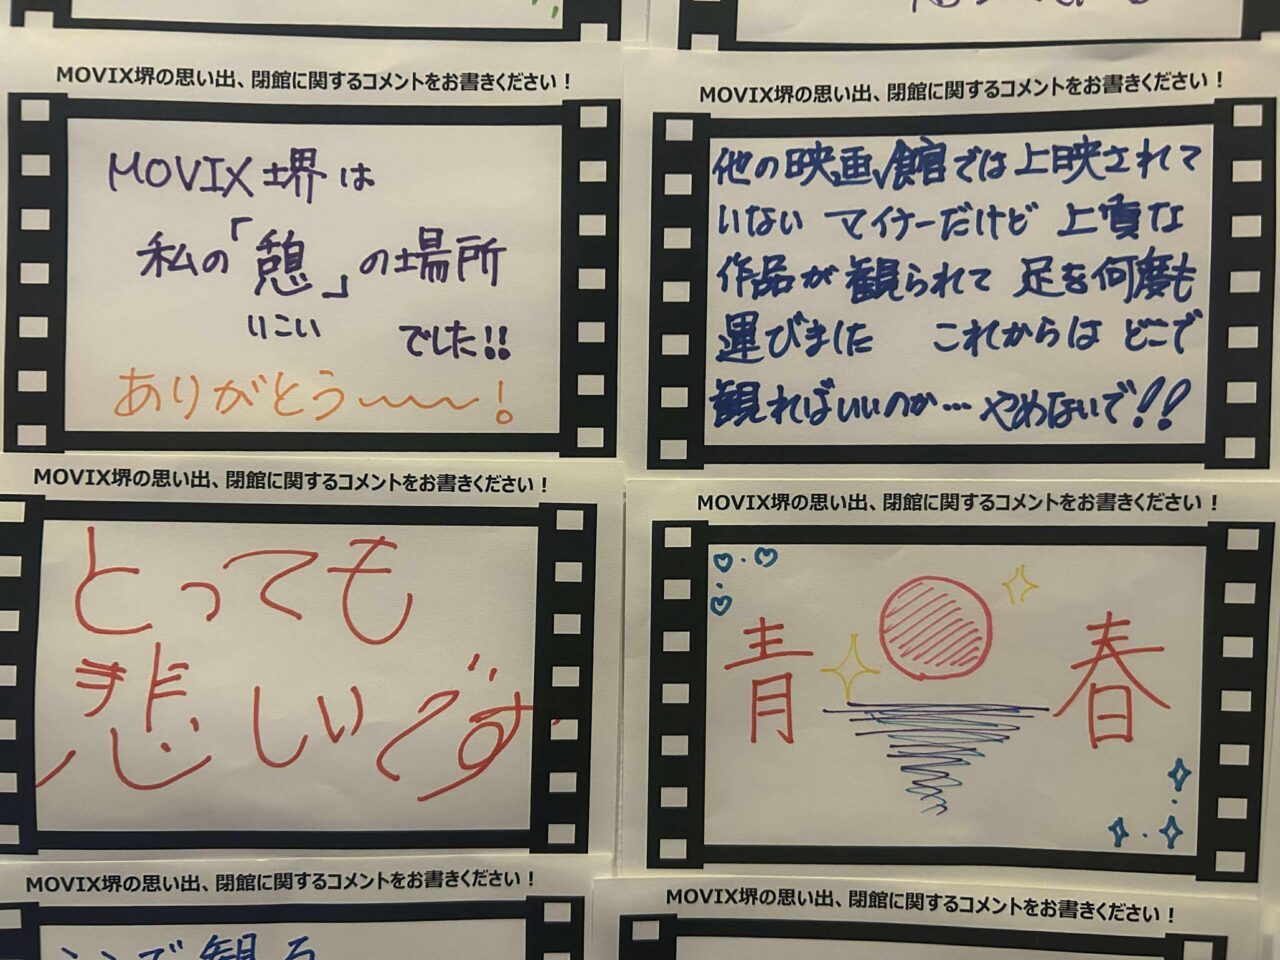 MOVIX堺の思い出、閉館に関するコメントをお書きください！
MOVIX堺は
私の「憩」の場所
いこい
でした!!
ありがとう〜〜〜！
MOVIX堺の思い出、閉館に関するコメントをお書きください！
他の映画館では上映されて
いない マイナーだけど 上質な
作品が 観られて 足を何度も
運びました これからは どこで
観ればいいのか… やめないで!!
MOVIX堺の思い出、閉館に関するコメントをお書きください！
とっても
悲しいです
MOVIX堺の思い出、閉館に関するコメントをお書きください！
青春
MOVIX堺の思い出、閉館に関するコメントをお書きください！
ここで観る
MOVIX堺の思い出、閉館に関するコメントをお書きください！